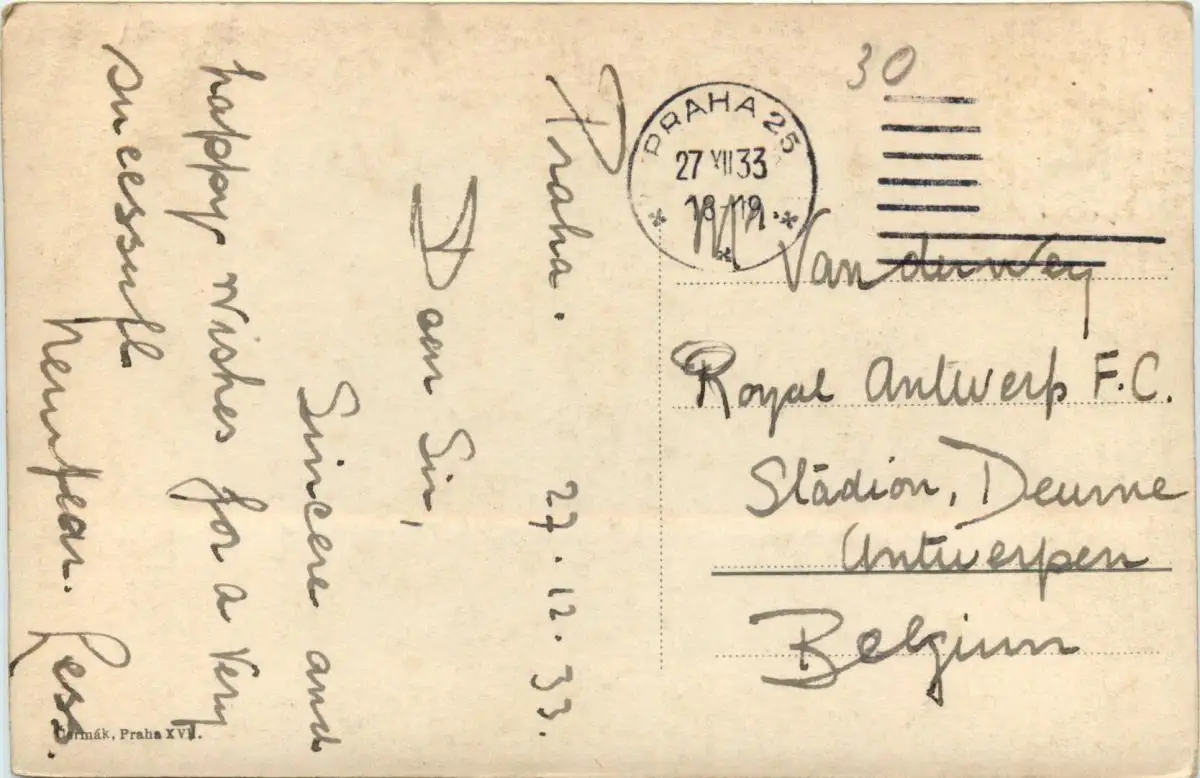 Praha. 27.12.33.
Dear Sir,
Sincere and
happy wishes for a very
successful
new year.
PRAHA 25
27 XII 33
18-19
30
Van der Wey
Royal Antwerp F.C.
Stadion, Deurne
Antwerpen
Belgium
Čermák, Praha XVII.